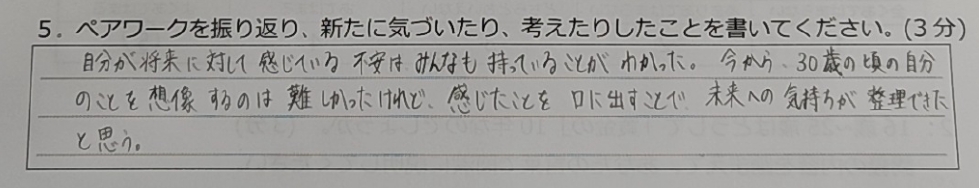 5．ペアワークを振り返り、新たに気づいたり、考えたりしたことを書いてください。(3分)
自分が将来に対して感じている不安はみんなも持っていることがわかった。今から、30歳の頃の自分
のことを想像するのは難しかったけれど、感じたことを口に出すことで未来への気持ちが整理できた
と思う。